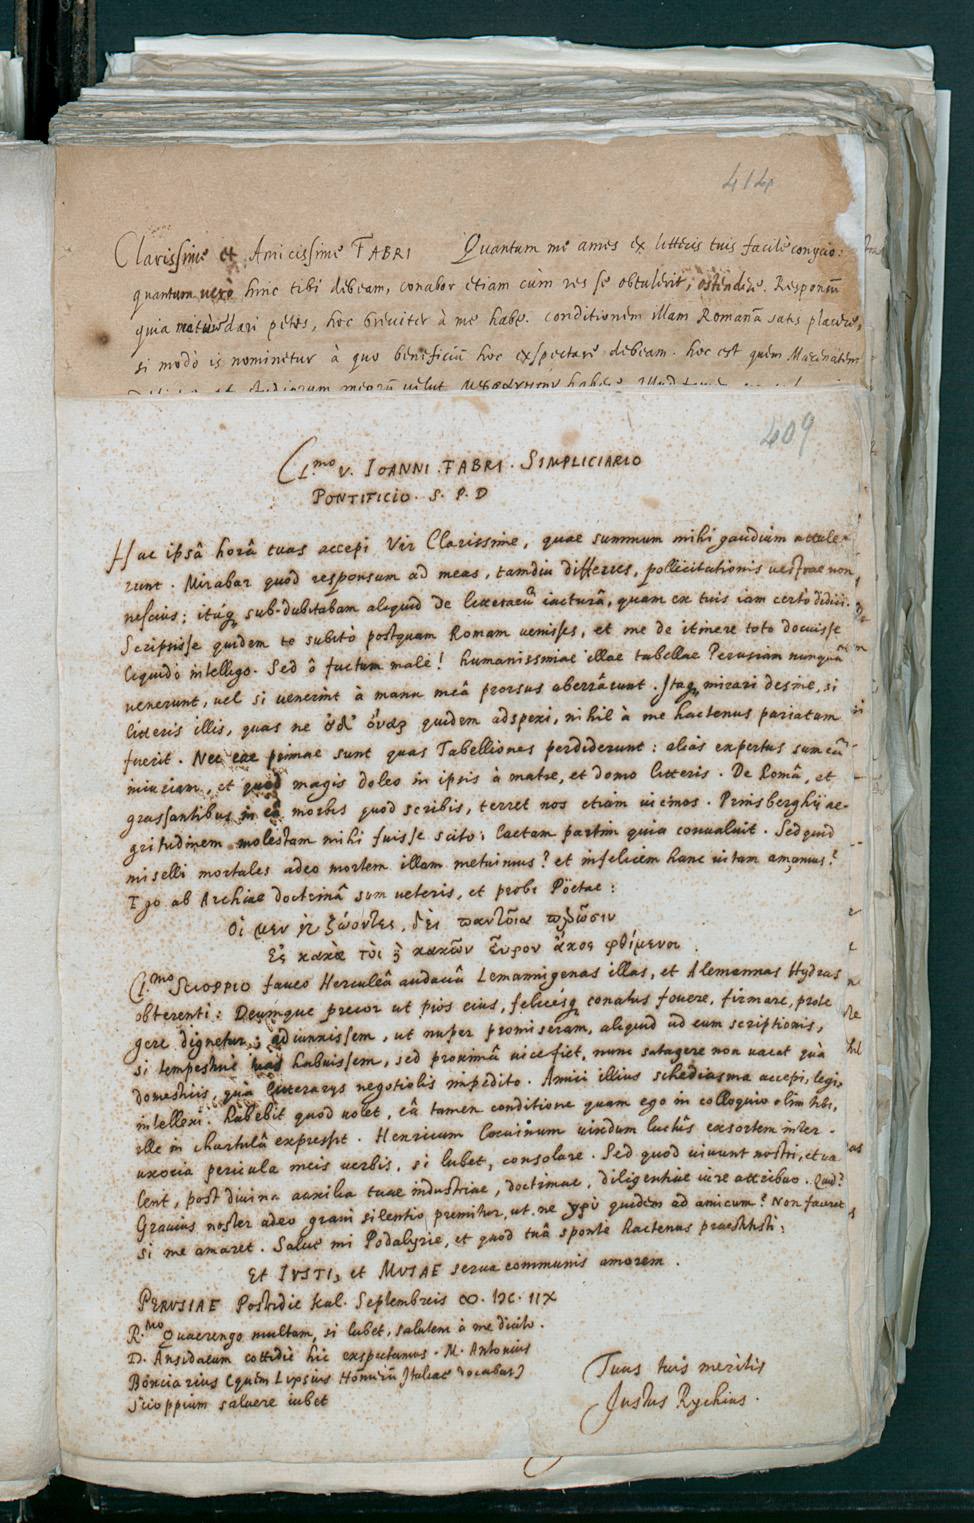 414
Clarissime et Amicissime FABRI Quantum me ames ex litteris tuis facile conycio:
quantum uerò hinc tibi debeam, conabor etiam cùm res se obtulerit, ostendere. Responsũ
quia dari petis, hoc breuiter à me habe. conditionem illam Romanã satis placere,
si modò is nominetur à quo beneficiũ hoc exspectare debeam. hoc est quem Maecenatem
409
Cl.mo V. IOANNI. FABRI. SIMPLICIARIO
PONTIFICIO. S. P. D
Hac ipsâ horâ tuas accepi Vir Clarissime, quae summum mihi gaudium attule-
runt. Mirabar quòd responsum ad meas, tamdiu differres, pollicitationis uestrae non
nescius; itaq̃ sub-dubitabam aliquid de litterarũ iacturâ, quam ex tuis iam certò didici.
Scripsisse quidem te subitò postquam Romam uenisses, et me de itinere toto docuisse
liquidò intelligo. Sed ô factum malè! humanissimae illae tabellae Perusiam nunquã
uenerunt, uel si uenerint à manu meâ prorsus aberrârunt. Itaq̃ mirari desine, si
literis illis, quas ne οὐδ' ὄναρ quidem adspexi, nihil à me hactenus pariatum
fuerit. Nec eae primae sunt quas Tabelliones perdiderunt: aliàs expertus sum eã
iniuriam, et quod magis doleo in ipsis à matre, et domo litteris. De Româ, et
grassantibus in eâ morbis quod scribis, terret nos etiam uicinos. Prinsberghij ae-
gritudinem molestam mihi fuisse scito; laetam partim quia conualuit. Sed quid
miselli mortales adeo mortem illam metuimus? et infelicem hanc uitam amamus?
Ego ab Archiae doctrinâ sum ueteris, et probi Poëtae:
Οἱ μεν ζώοντες, δεὶ παντοῖα
Ἐς κακὰ τὸι κακῶν ἕυρον ἄκος φθίμενοι.
Cl.mo SCIOPPIO faueo Herculêâ audaciâ Lemannigenas illas, et Alemannas Hydras
obterenti: Deumque precor ut pios eius, felicesq̃ conatus fouere, firmare, prote
gere dignetur; adiunxissem, ut nuper promiseram, aliquid ad eum scriptionis,
si tempestiuè tuas habuissem, sed proximâ uice fiet, nunc satagere non uacat quà
domesticis, quà litterarys negotiolis impedito. Amici illius schediasma accepi, legi,
intellexi. habebit quod uolet, eâ tamen conditione quam ego in colloquio olim tibi,
ille in chartulâ expressit. Henricum uindum luctûs exsortem inter
uxoria pericula meis uerbis, si lubet, consolare. Sed quod uiuunt nostri, et ua
lent, post diuina auxilia tuae industriae, doctrinae, diligentiae iure attribuo. Quid?
Grauius noster adeo graui silentio premitur, ut ne γρὺ quidem ad amicum? Non faceret
si me amaret. Salue mi Podalyrie, et quod tuâ sponte hactenus praestitisti;
Et IVSTI, et MVSAE serua communis amorem.
PERVSIAE Postridie Kal. Septembreis ∞. IƆC. IIX
R.mo Quaerengo multam, si lubet, salutem à me dicito.
D. Ansidaeum cottidie hic exspectamus. M. Antonius
Bonciarius (quem Lipsius Homerũ Italiae vocabat)
Scioppium saluere iubet
Tuus tuis meritis
Justus Rychius.